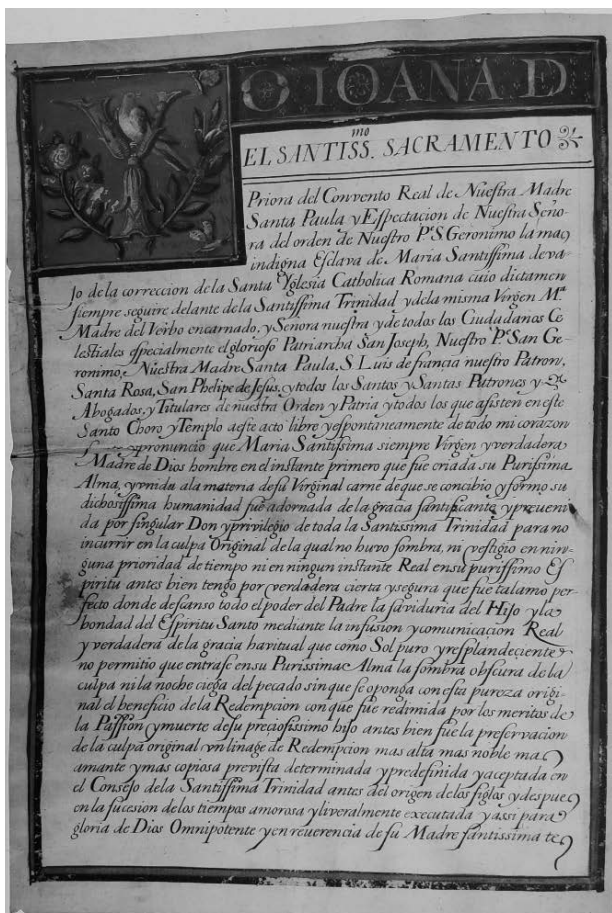 YO IOANA D
EL SANTISS.mo SACRAMENTO
Priora del Convento Real de Nuestra Madre
Santa Paula y Espectacion de Nuestra Seño-
ra del orden de Nuestro P.e S. Geronimo la mas
indigna Esclava de Maria Santissima deva-
Jo de la correccion de la Santa Yglesia Catholica Romana cuio dictamen
siempre seguire delante de la Santissima Trinidad y de la misma Virgen M.a
Madre del Verbo encarnado, y Señora nuestra y de todos los Ciudadanos Ce
lestiales especialmente el glorioso Patriarcha San Joseph, Nuestro P.e San Ge-
ronimo, Nuestra Madre Santa Paula, S. Luis de francia nuestro Patron,
Santa Rosa, San Phelipe de Jesus, y todos los Santos y Santas Patrones y
Abogados, y Titulares de nuestra Orden y Patria y todos los que asisten en este
Santo Choro y Templo a este acto libre y espontaneamente de todo mi corazon
y pronuncio que Maria Santissima siempre Virgen y verdadera
Madre de Dios hombre en el instante primero que fue criada su Purissima
Alma, y vnida a la materia de su Virginal carne de que se concibio y formo su
dichosissima humanidad fue adornada de la gracia santificante y preveni
da por singular Don y privilegio de toda la Santissima Trinidad para no
incurrir en la culpa Original de la qual no huvo sombra, ni vestigio en nin-
guna prioridad de tiempo ni en ningun instante Real en su purissimo Es
piritu antes bien tengo por verdadera cierta y segura que fue talamo per-
fecto donde descanso todo el poder del Padre la saviduria del Hijo y la
bondad del Espiritu Santo mediante la infusion y comunicacion Real
y verdadera de la gracia havitual que como Sol puro y resplandeciente
no permitio que entrase en su Purissima Alma la sombra obscura de la
culpa ni la noche ciega del pecado sin que se oponga con esta pureza origi-
nal el beneficio de la Redempcion con que fue redimida por los meritos de
la Passion y muerte de su preciosissimo hijo antes bien fue la preservacion
de la culpa original vn linage de Redempcion mas alta mas noble mas
amante y mas copiosa prevista determinada y predefinida y aceptada en
el Consejo de la Santissima Trinidad antes del origen de los siglos y despues
en la sucesion de los tiempos amorosa y liveralmente executada y assi para
gloria de Dios Omnipotente y en reverencia de su Madre santissima te